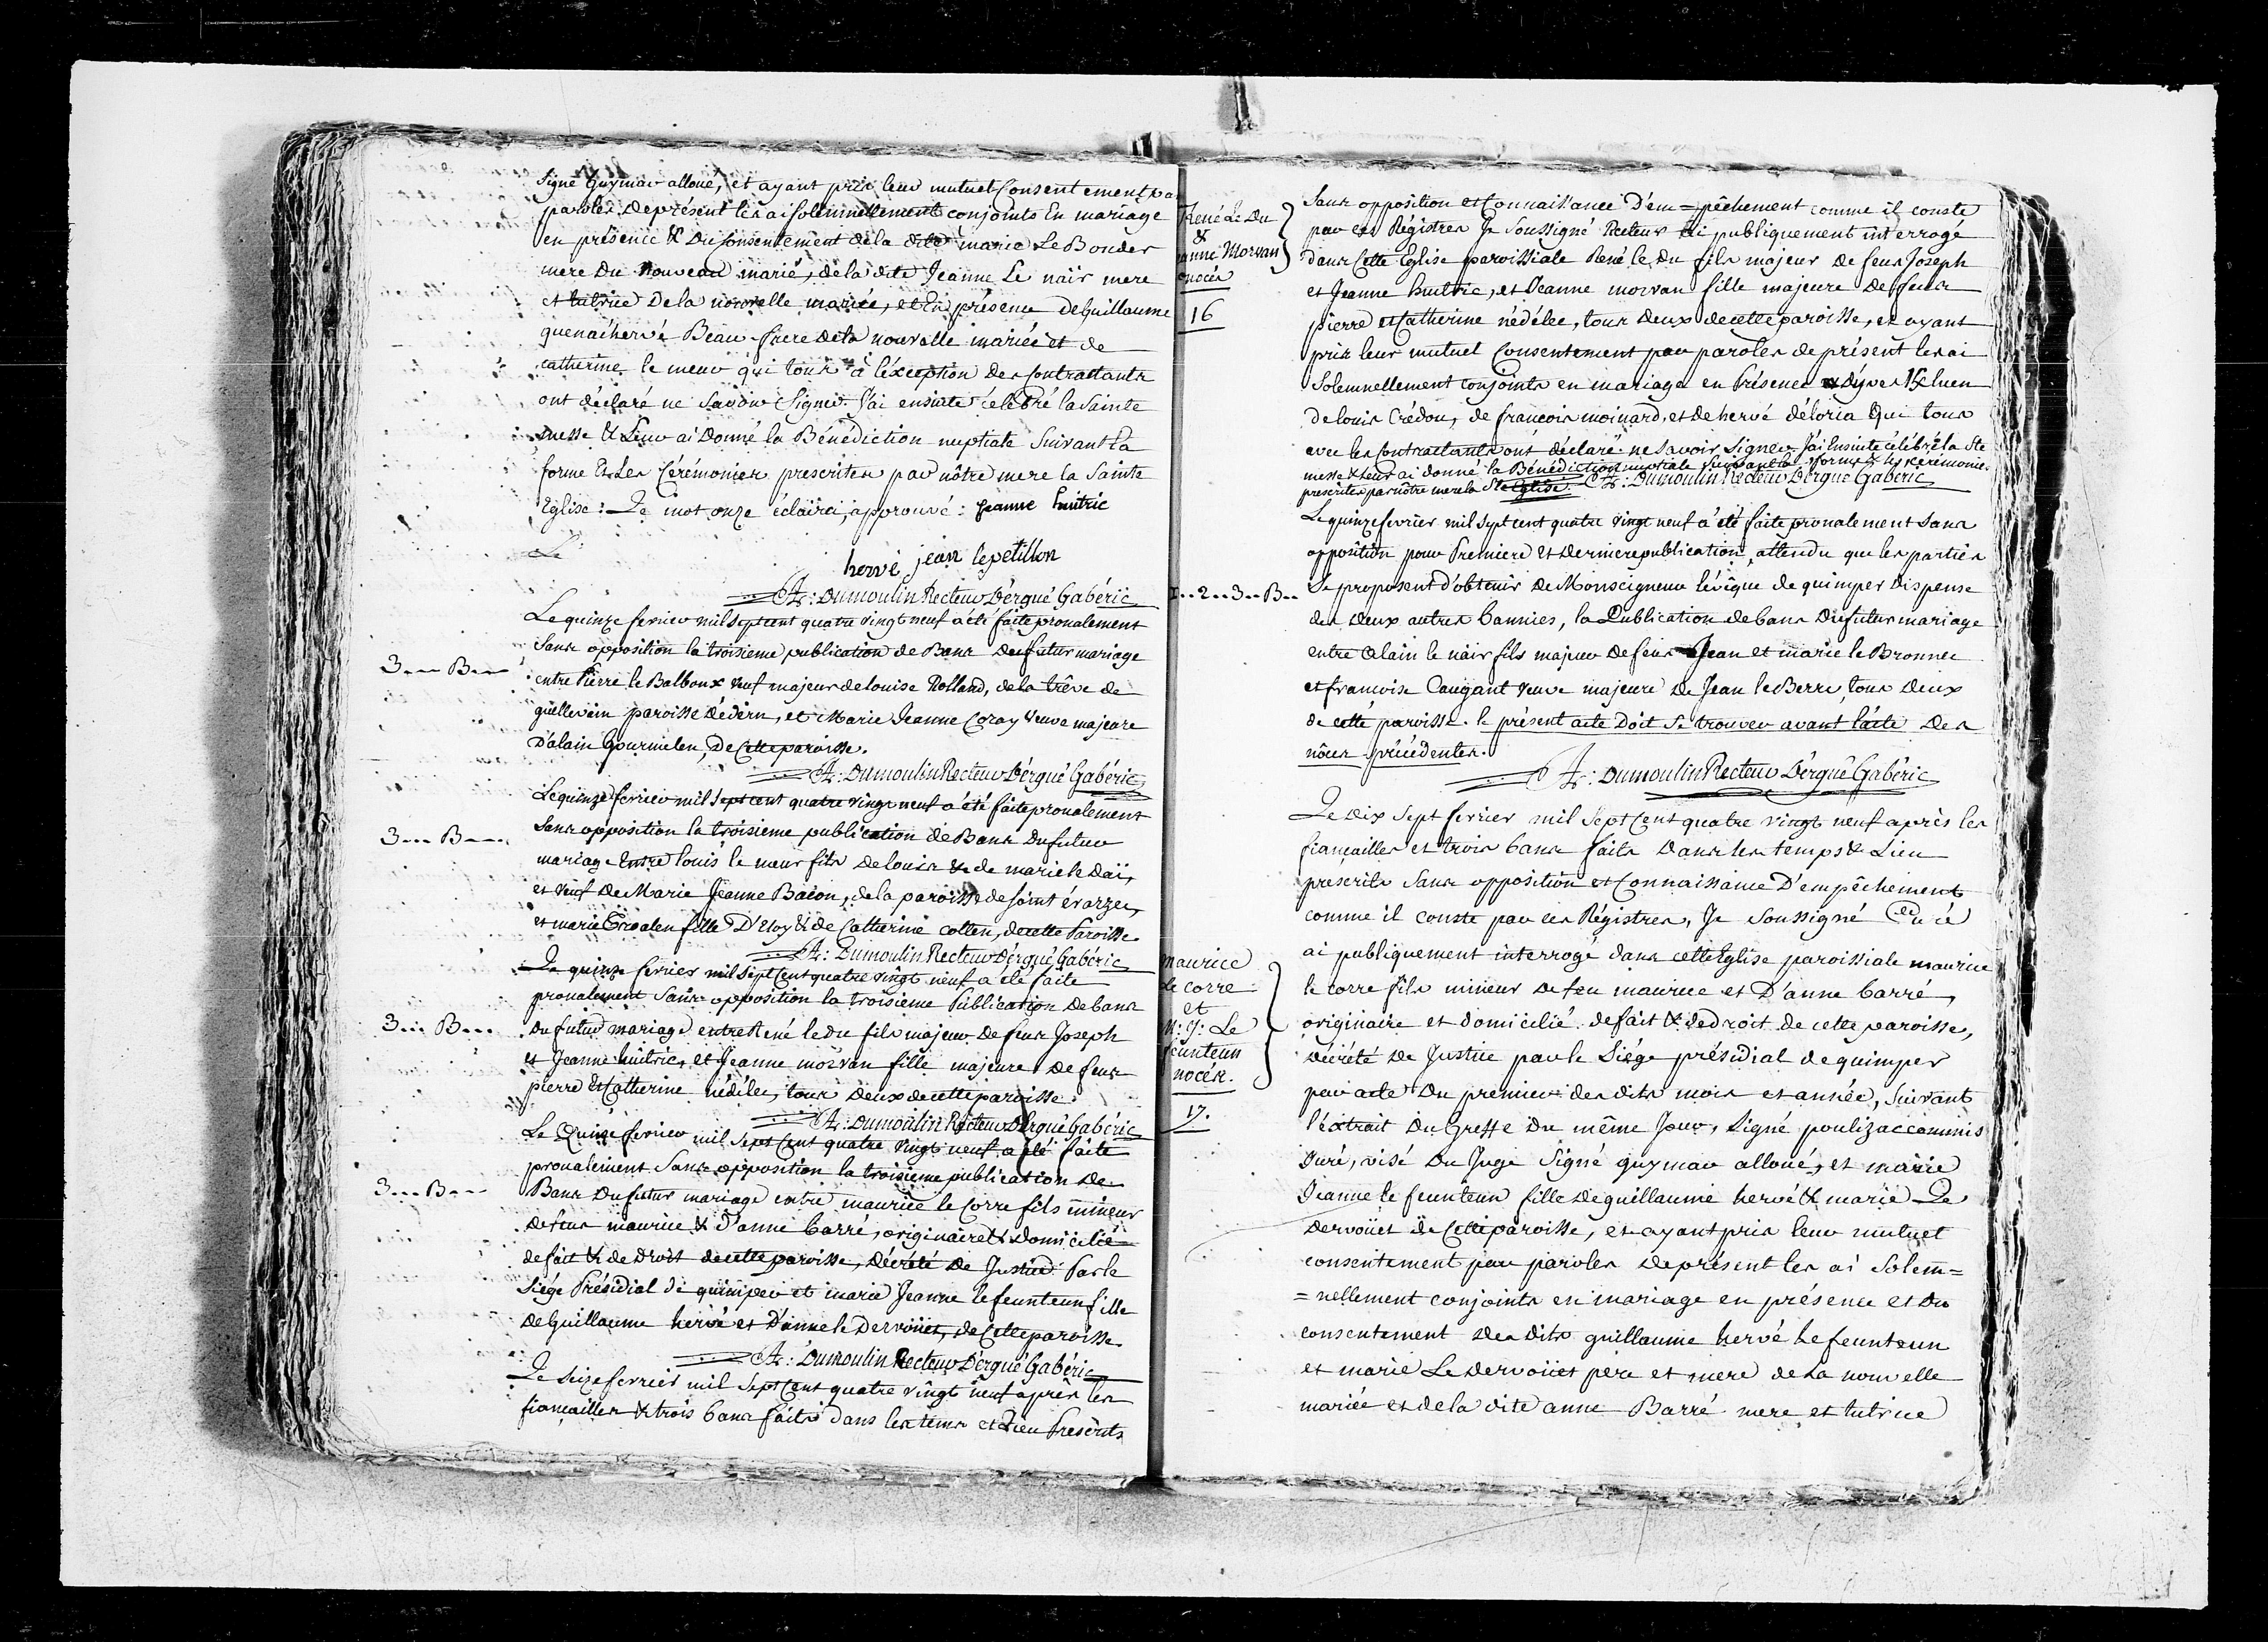 Signé Guymar alloué, et ayant pris leur mutuel Consentement pa
paroles de présent les ai solemnellement conjoints En mariage
en présence & Du Consentement de la dite marie Le Bouder
mere Du nouveau marié, de la dite Jeanne Le naïr mere
et tutrice De la nouvelle mariée, et En présence de Guillaume
quenaihervé Beau-frere de la nouvelle mariée et de
catherine le meur qui tous à l'éxception des Contractants
ont déclaré ne Savoir Signer J'ai ensuite célébré la Sainte
messe & Leur ai Donné la Bénédiction nuptiale Suivant La
forme Et Les Cérémonies prescrites par nôtre mere la Sainte
Eglise: Le mot onze éclairci, approuvé: jeanne huitric
Le
hervé jean lepetillon
A: Dumoulin Recteur D'ergué Gabéric
Le quinze fevrier mil Sept cent quatre vingt neuf a été faite pronalement
3.... B....
Sans opposition la troisieme publication de Bans du futur mariage
entre Pierre le Balbous veuf majeur de louise Rolland, de la trêve de
quellevain paroisse d'édern, et Marie Jeanne Coray veuve majeure
D'alain Gourmelen, De Cette paroisse.
A: Dumoulin Recteur D'ergué Gabéric
Le quinze fevrier mil Sept cent quatre vingt neuf a été faite pronalement
3.... B....
Sans opposition la troisieme publication de Bans Du futur
mariage Entre louis le meur fils de louis & de marie le Daï,
et veuf de Marie Jeanne Bacon, de la paroisse de saint évarzec,
et marie fille D'eloy & de Catherine Colten, de cette Paroisse.
A: Dumoulin Recteur D'ergué Gabéric
Le quinze fevrier mil Sept Cent quatre vingt neuf a été faite
pronalement Sans opposition la troisieme Publication de bans
3.... B....
Du futur mariage entre René le du fils majeur de feus Joseph
et Jeanne huitric, et Jeanne morvan fille majeure de feus
pierre Et Catherine nédélec, tous Deux de cette paroisse.
A: Dumoulin Recteur D'Ergué Gabéric
Le Quinze fevrier mil Sept Cent quatre vingt neuf a été faite
pronalement Sans opposition la troisieme publication De
3.... B....
Bans Du futur mariage entre maurice le Corre fils mineur
de feus maurice & D'anne barré, originaire & Domicilié
de fait & de Droit de cette paroisse, Décrété de Justice Par le
Siége Présidial de quimper et marie Jeanne le feunteun fille
de Guillaume hervé et D'anne le Dervoüet, de Cette paroisse.
A: Dumoulin Recteur D'ergué Gabéric
Le Seize fevrier mil Sept Cent quatre vingt neuf après les
fiançailles & trois bans faits dans les tems et Lieu Prescrits
René Le Du
&
anne Morvan
noces
16
Sans opposition et Connaissance D'em=pêchement comme il conste
par ces Régistres Je Soussigné Recteur ai publiquement interrogé
dans Cette Eglise paroissiale René le Du fils majeur de feus Joseph
et Jeanne huitric, et Jeanne morvan fille majeure De feus
pierre et Catherine nédélec, tous deux de cette paroisse, et ayant
pris leur mutuel Consentement par paroles de présent les ai
Solemnellement conjoints en mariage en Présence
de louis Crédou, de françois moinard, et de hervé déloria Qui tous
avec les Contractants ont déclaré ne Savoir Signer J'ai Ensuite célébré la Ste
messe & leur ai donné la Bénédiction nuptiale Suivant la forme & les cérémonies
prescrites par nôtre mere la Ste Eglise. A: Dumoulin Recteur D'ergué Gabéric
Le quinze fevrier mil Sept cent quatre vingt neuf a été faite pronalement Sans
opposition pour Premiere Et Derniere publication, attendu que les parties
1..2..3..B..
Se proposent d'obtenir de Monseigneur l'évêque de quimper Dispense
des deux autres bannies, la Publication de bans Du futur mariage
entre Alain le naïr fils majeur de feus Jean et marie le Bronnec
et francoise Caugant veuve majeure De Jean le Berre, tous deux
de cette paroisse. le présent acte Doit Se trouver avant l'acte Des
nôces précédentes.
A: Dumoulin Recteur D'ergué Gabéric
Le Dix Sept fevrier mil Sept Cent quatre vingt neuf après les
fiançailles et trois bans faits Dans les temps & Lieu
prescrits Sans opposition et Connaissance D'empêchement
comme il conste par ces Régistres, Je Soussigné Curé
maurice
Le corre
et
M: J: Le
feunteun
nocés.
17.
ai publiquement interrogé dans cette Eglise paroissiale maurice
le corre fils mineur de feu maurice et D'anne barré,
originaire et domicilié de fait & de droit de cette paroisse,
décrété De Justice par le Siége présidial de quimper
par acte Du premier des dits mois et année, Suivant
l'éxtrait Du Greffe Du même Jour, Signé poulizac commis
Juré, visé Du Juge Signé guymar alloué, et marie
Jeanne le feunteun fille de guillaume hervé & marie Le
Dervoüet de Cette paroisse, et ayant pris leur mutuel
consentement par paroles de présent les ai Solem=
=nellement conjoints en mariage en présence et du
consentement des dits guillaume hervé le feunteun
et marie Le Dervoüet pere et mere de la nouvelle
mariée et de la dite anne Barré mere et tutrice